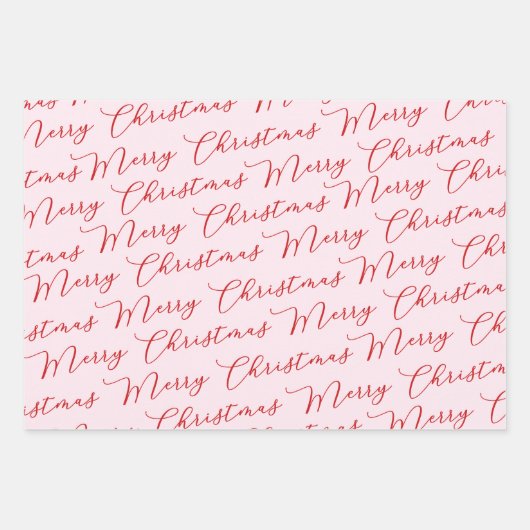 mas
Merry Christmas Merry
stmas Merry Christmas Merry Christmas
Merry Christmas Merry Christmas
stmas Merry Christmas Merry Christmas
Merry Christmas Merry Christmas
istmas Merry Christmas Merry
Merry Christmas Merry Christmas
istmas Merry Christmas Merry
Merry Christmas Merry Christmas
Christmas Merry